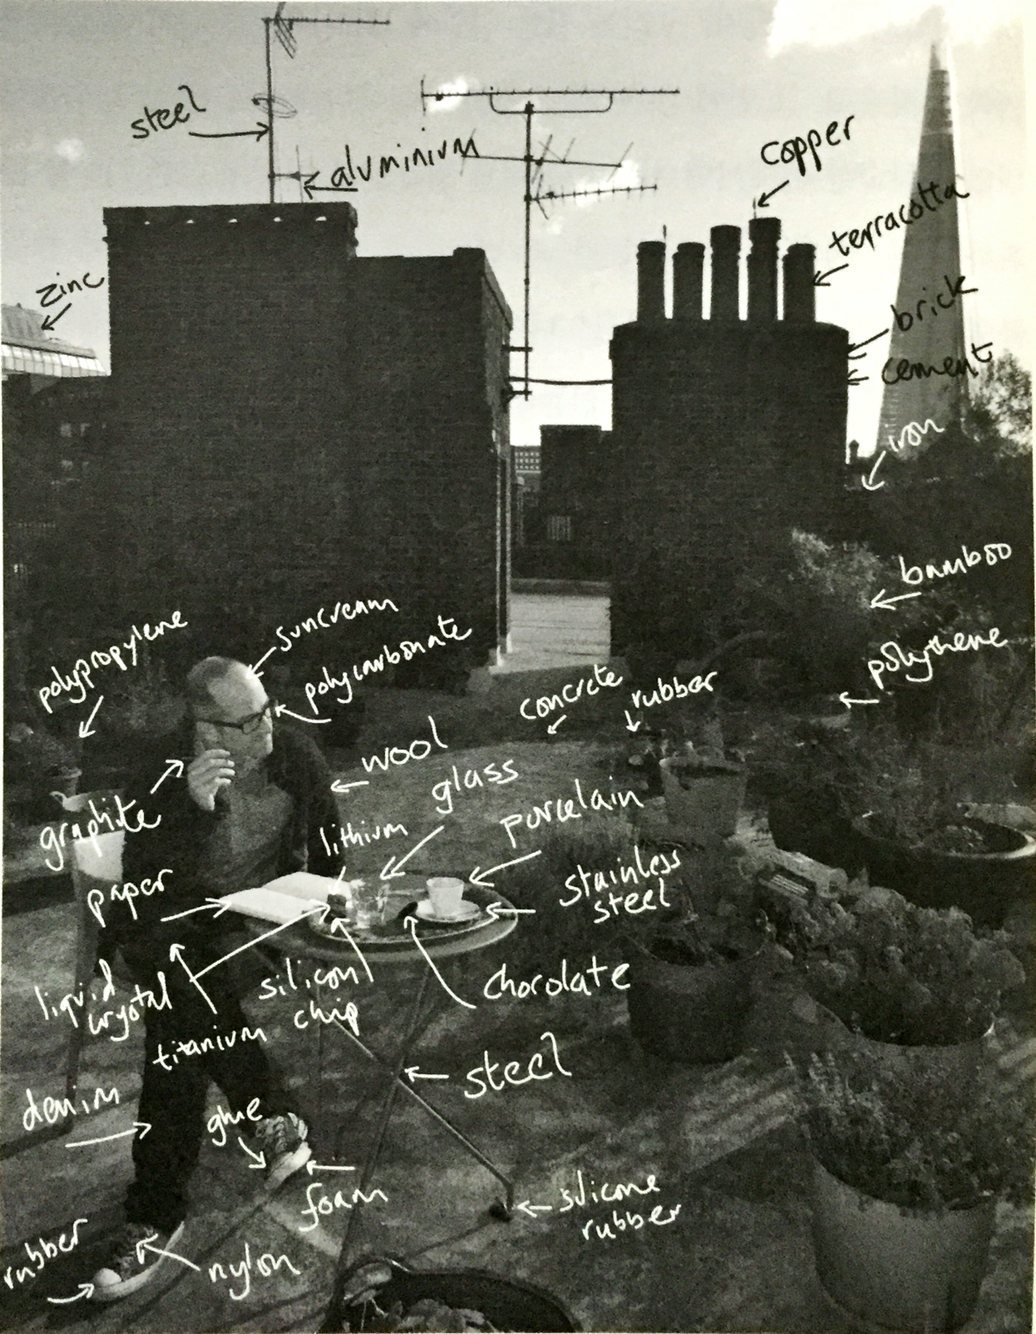 steel
aluminium
copper
terracotta
zinc
brick
cement
iron
bamboo
suncream
polypropylene
polycarbonate
polythene
concrete
rubber
wool
glass
graphite
lithium
porcelain
paper
stainless
steel
liquid
crystal
silicon
chip
chocolate
titanium
steel
denim
glue
foam
silicone
rubber
rubber
nylon